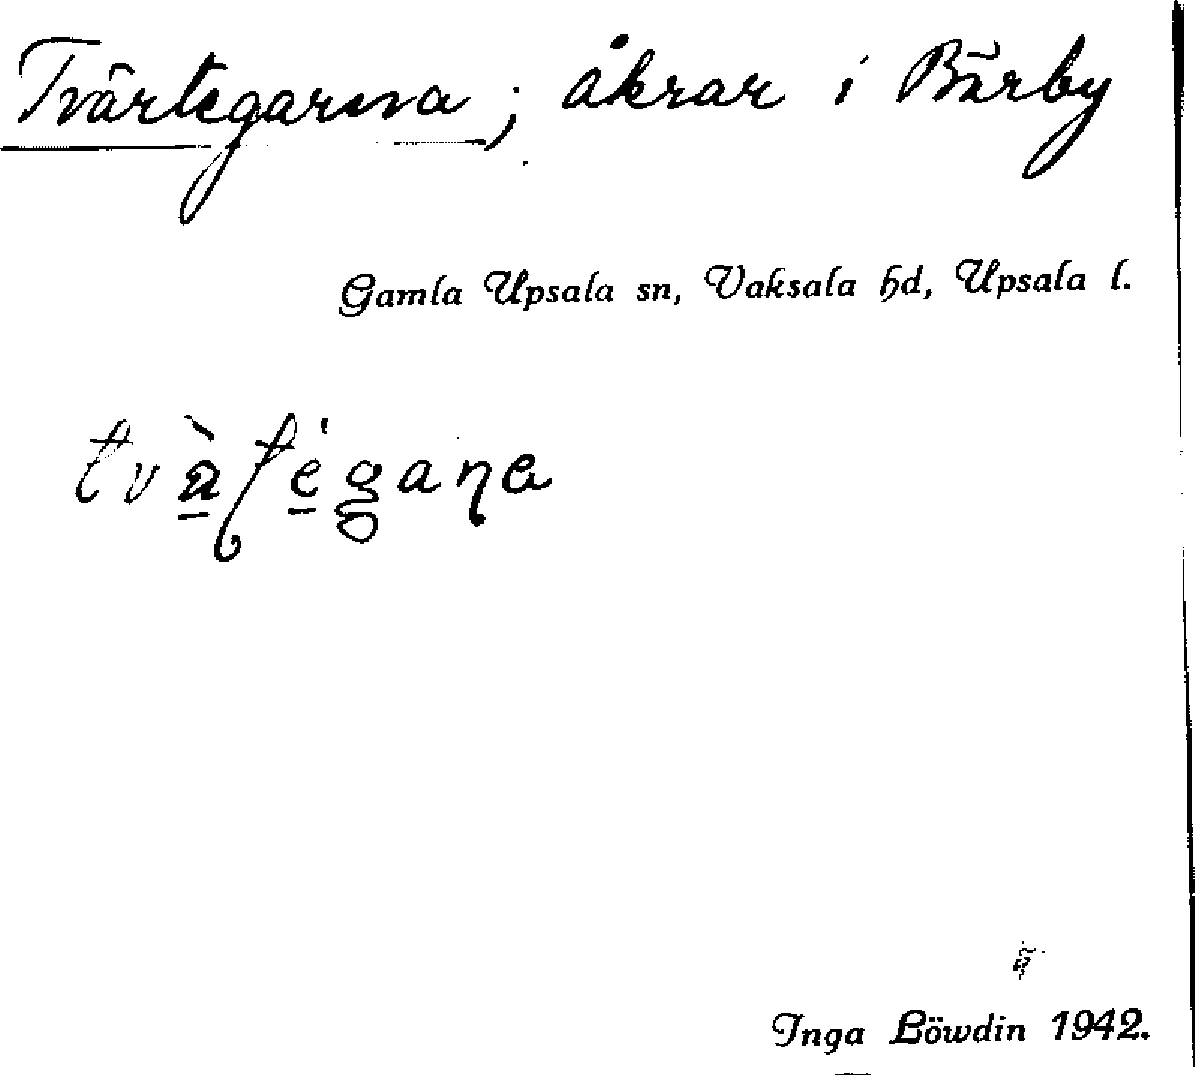 Tvärtegarna; åkrar i Bärby
Gamla Upsala sn, Vaksala hd, Upsala l.
Inga Löwdin 1942.